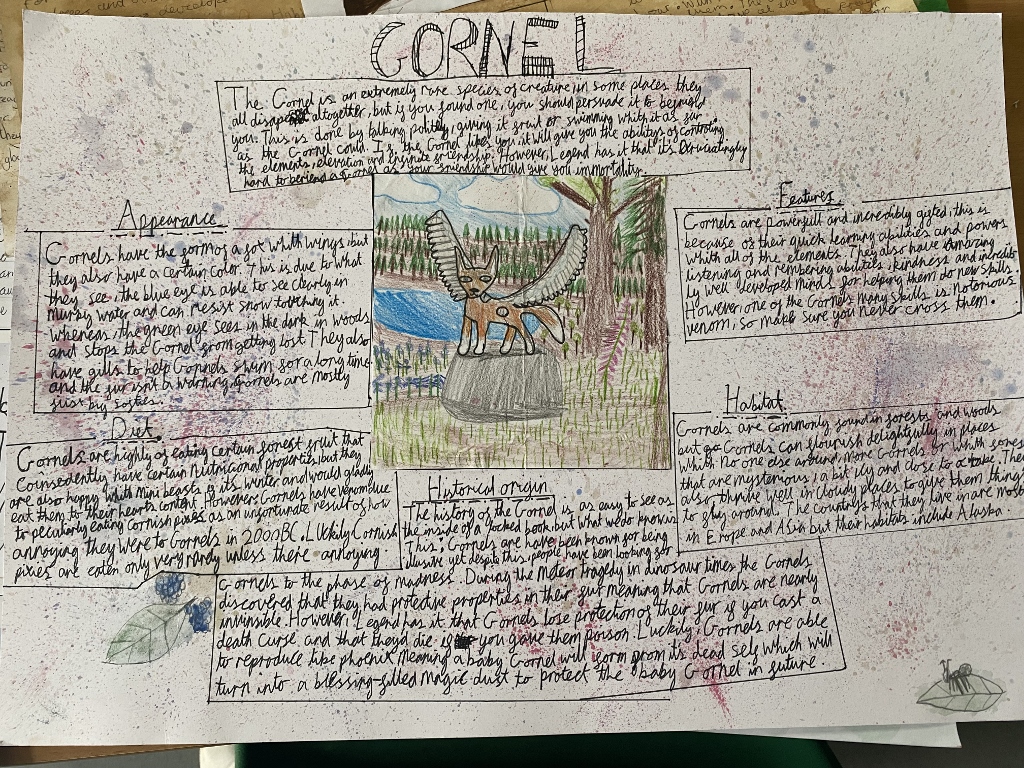 GORNEL
The Gornel is an extremely rare species of creature, in some places they
all disapear altogether, but if you found one, you should persuade it to befriend
you. This is done by talking politely, giving it fruit or swimming whith it as far
as the Gornel could. If the Gornel likes you, it will give you the abilitys of controling
the elements, elevation and infinite friendship. However, Legend has it that it's Excruciatingly
hard to befriend a Gornel as your friendship would give you immortality.
Appearance
Gornels have the form of a fox whith wings, but
they also have a certain color. This is due to what
they see, the blue eye is able to see clearly in
murky water and can resist snow touching it.
Whereas, the green eye sees in the dark in woods
and stops the Gornel from getting lost. They also
have gills to help Gornels swim for a long time
and the fur isn't a warning, Gornels are mostly
just big softes.
Features
Gornels are powerfull and incredibly gifted, this is
because of their quick learning abilities and powers
whith all of the elements. They also have amazing
listening and rembering abilites, kindness and incredib
ly well developed minds for helping them do new skills.
However, one of the Gornels many skills is notorious
venom, so make sure you never cross them.
Diet
Gornels are highly of eating certain forest fruit that
Counsedently have certain Nutricional properties, but they
are also happy whith mini beasts if its winter and would gladly
eat them to their hearts content. However, Gornels have venom due
to peculiarly eating Cornish pixies as an unfortunate result of how
annoying they were to Gornels in 2000BC. Luckily Cornish
pixies are eaten only very rarely unless there annoying.
Habitat
Gornels are commonly found in forests and woods
but Gornels can flourish delightfully in places
which no one else around, more Gornels or whith fores
that are mysterious, a bit icy and close to a lake. They
also thrive well in cloudy places to give them things
to fly around. The countrys that they live in are most
in Erope and Asia but their habitats include Alaska.
Historical origin
The history of the Gornel is as easy to see as
the inside of a locked book, but what we do know is
This. Gornels are have been known for being
illusive yet despite this, people have been looking for
Gornels to the phase of madness. During the Meteor tragedy in dinosaur times the Gornels
discovered that they had protective properties in their fur meaning that Gornels are nearly
invinsible. However, Legend has it that Gornels lose protection of their fur if you cast a
death curse and that theyd die if you gave them poison. Luckily, Gornels are able
to reproduce like phoenix meaning a baby Gornel will form from its dead self which will
turn into a blessing-filled magic dust to protect the baby Gornel in future.